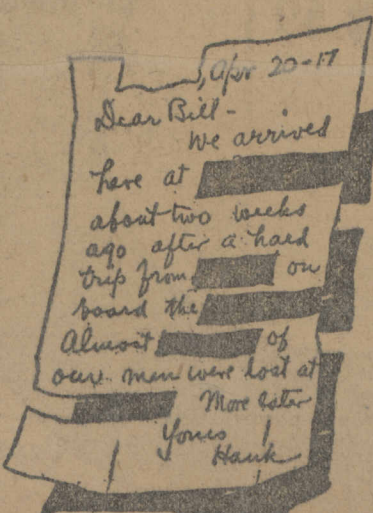 , Apr 20-17
Dear Bill-
We arrived
here at
about two weeks
ago after a hard
trip from on
board the
Almost of
our men were lost at
More later
Yours
Hank